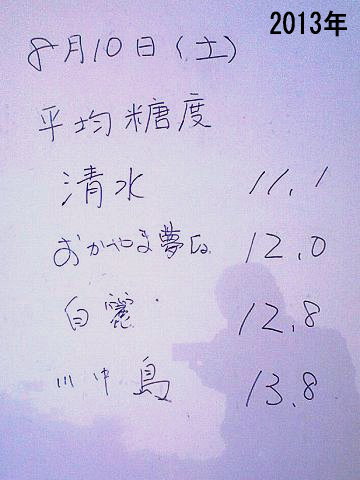 2013年
8月10日(土)
平均糖度
清水 11.1
おかやま夢白 12.0
白麗 12.8
川中島 13.8